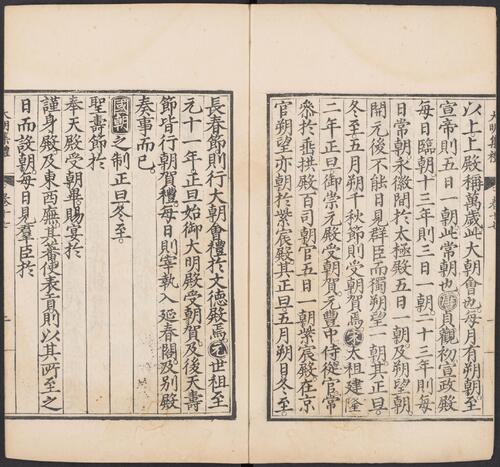 以上上殿稱萬歲此大朝會也每月有朔朝至
宣帝則五日一朝此常朝也唐貞觀初宣政殿
每日臨朝十三年則三日一朝二十三年則每
日常朝永徽間於太極殿五日一朝及朔望朝
開元後不能日見群臣而獨朔望一朝其正旦
冬至五月朔千秋節則受朝賀焉宋太祖建隆
二年正旦御崇元殿受朝賀元豐中侍從官常
叅於垂拱殿百司朝官五日一朝紫宸殿在京
官朔望亦朝於紫宸殿其正旦五月朔日冬至
長春節則行大朝會禮於文德殿焉元世祖至
元十一年正旦始御大明殿受朝賀及後天壽
節皆行朝賀禮每日則宰執入延春閣及別殿
奏事而已
國朝之制正旦冬至
聖壽節於
奉天殿受朝畢賜宴於
謹身殿及東西廡其蕃使表貢則以其所至之
日而設朝每日見羣臣於